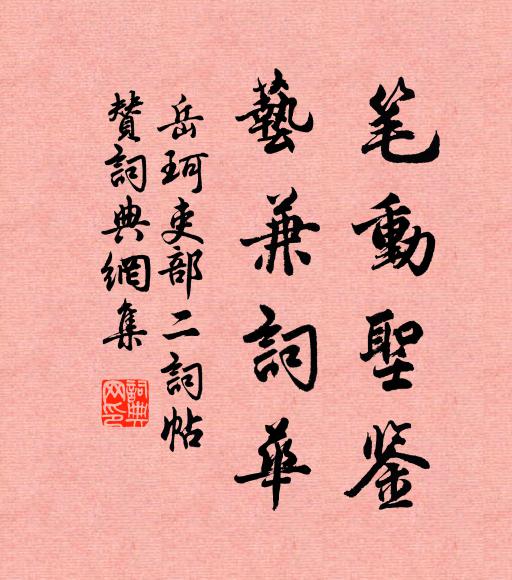 笔動聖鉴
藝兼詞華
岳珂吏部二詞帖
贊詞典網集
詞典网印